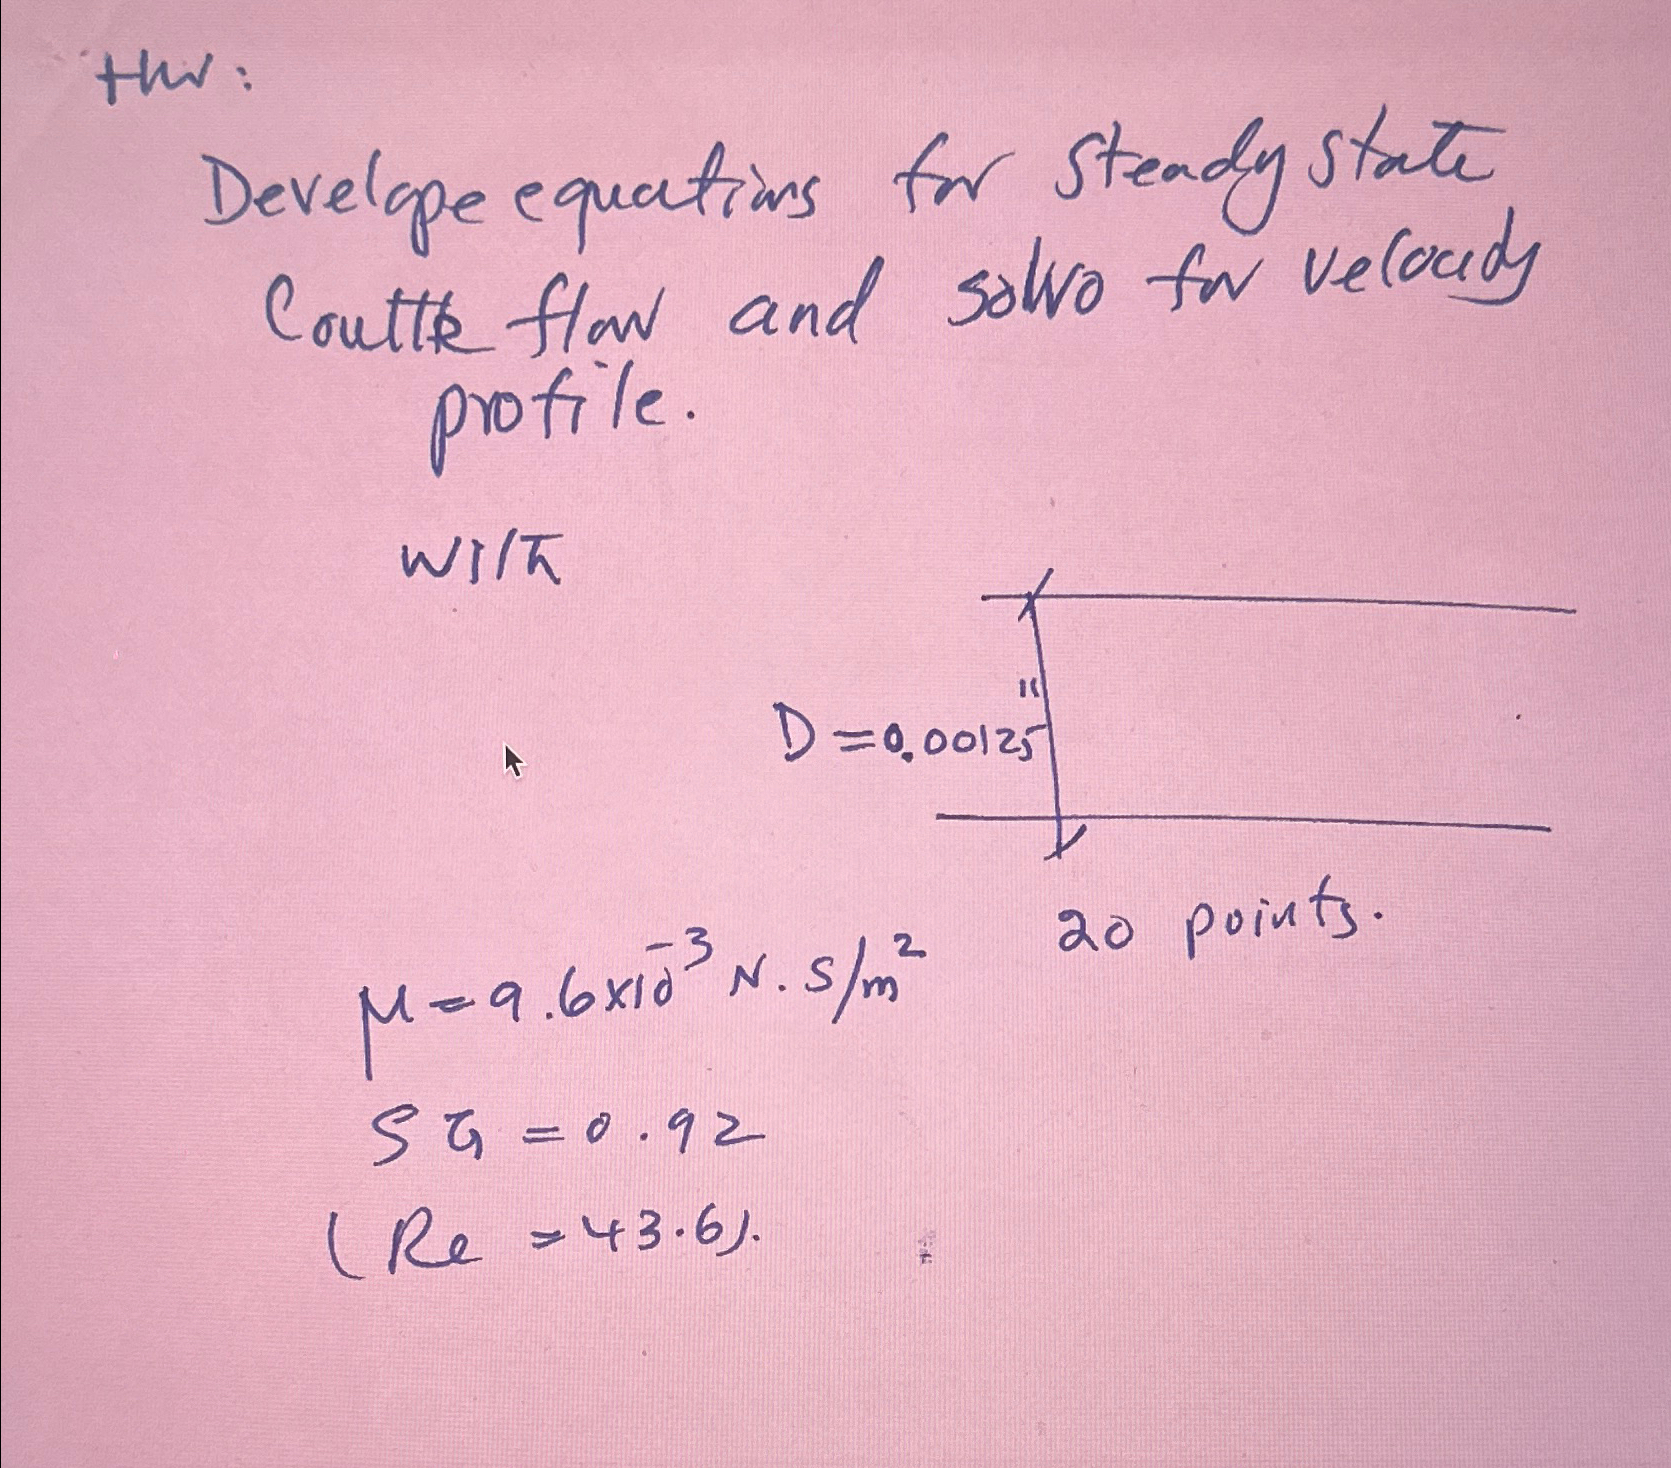 HW:
Develope equations for steady state
Couttte flow and solve for velocity
profile.
with
D = 0.00125"
20 points.
μ = 9.6x10⁻³ N.S/m²
SG = 0.92
(Re = 43.6).